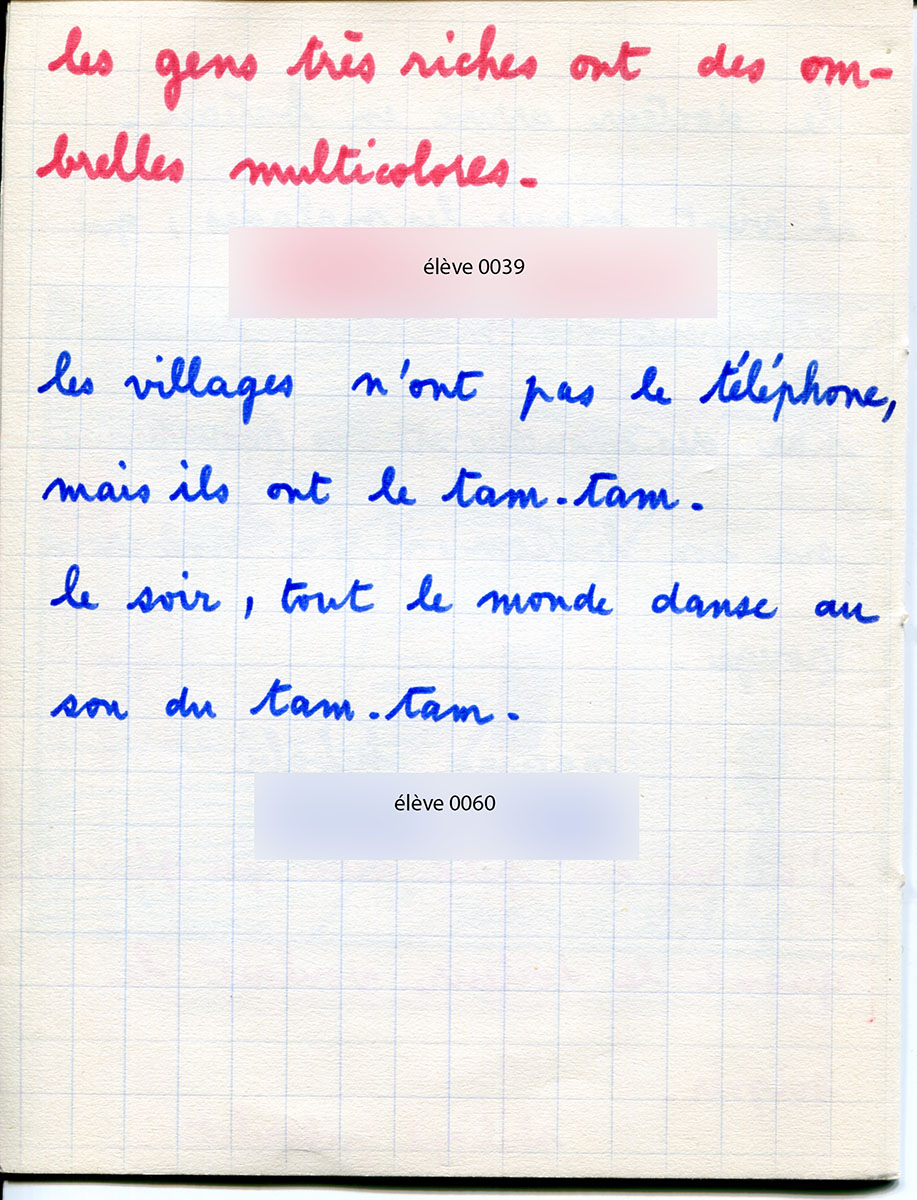 les gens très riches ont des om-
brelles multicolores.
élève 0039
les villages n'ont pas le téléphone,
mais ils ont le tam-tam.
le soir, tout le monde danse au
son du tam-tam.
élève 0060